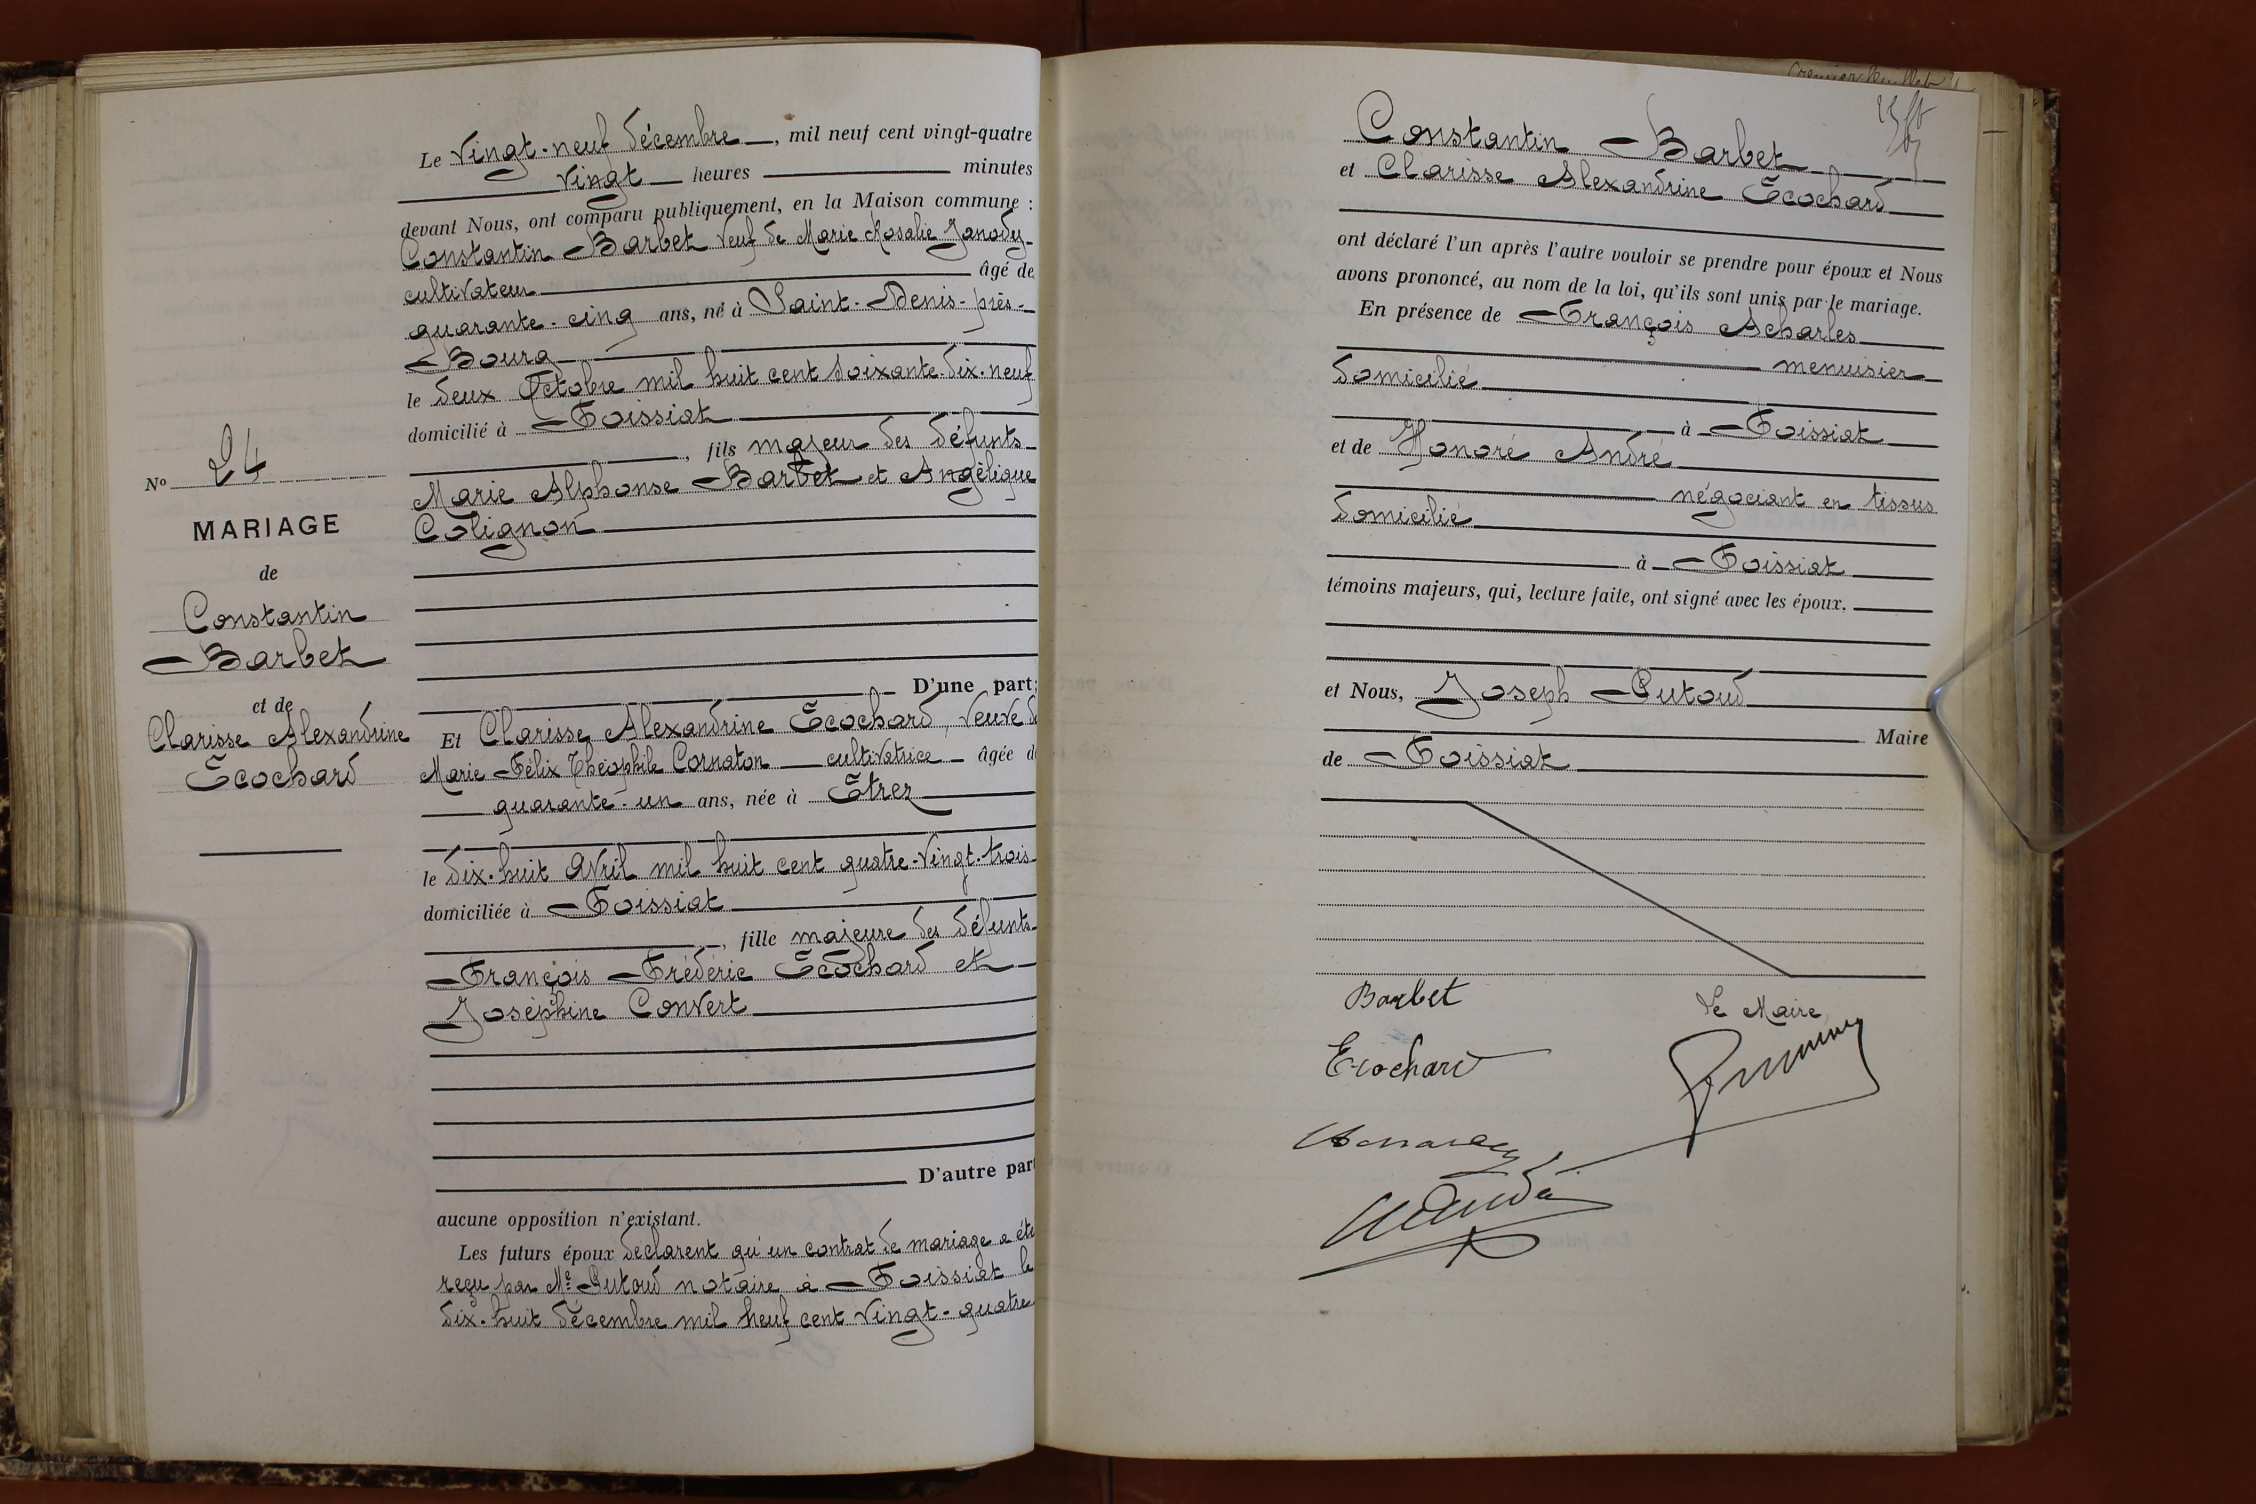 Le vingt-neuf décembre, mil neuf cent vingt-quatre
vingt heures minutes
devant Nous, ont comparu publiquement, en la Maison commune :
Constantin Barbet veuf de Marie Rosalie Janody
cultivateur âgé de
quarante-cinq ans, né à Saint-Denis-près-
Bourg
le deux Octobre mil huit cent soixante-dix-neuf
domicilié à Foissiat
, fils majeur des défunts
Marie Alphonse Barbet et Angélique
Colignon
D'une part;
Et Clarisse Alexandrine Ecochard, veuve de
Marie Félix Théophile Cornaton cultivatrice âgée de
quarante-un ans, née à Etrez
le dix-huit Avril mil huit cent quatre-vingt-trois
domiciliée à Foissiat
, fille majeure des défunts
François Frédéric Ecochard et
Joséphine Convert
D'autre part
aucune opposition n'existant.
Les futurs époux déclarent qu'un contrat de mariage a été
reçu par Me Putoud notaire à Foissiat le
dix-huit décembre mil neuf cent vingt-quatre
No 24
MARIAGE
de
Constantin
Barbet
et de
Clarisse Alexandrine
Ecochard
Constantin Barbet
et Clarisse Alexandrine Ecochard
ont déclaré l'un après l'autre vouloir se prendre pour époux et Nous
avons prononcé, au nom de la loi, qu'ils sont unis par le mariage.
En présence de François Acharles
menuisier
domicilié
à Foissiat
et de Honoré André
négociant en tissus
domicilié
à Foissiat
témoins majeurs, qui, lecture faite, ont signé avec les époux.
et Nous, Joseph Putoud
Maire
de Foissiat
Barbet
Le Maire,
Ecochard